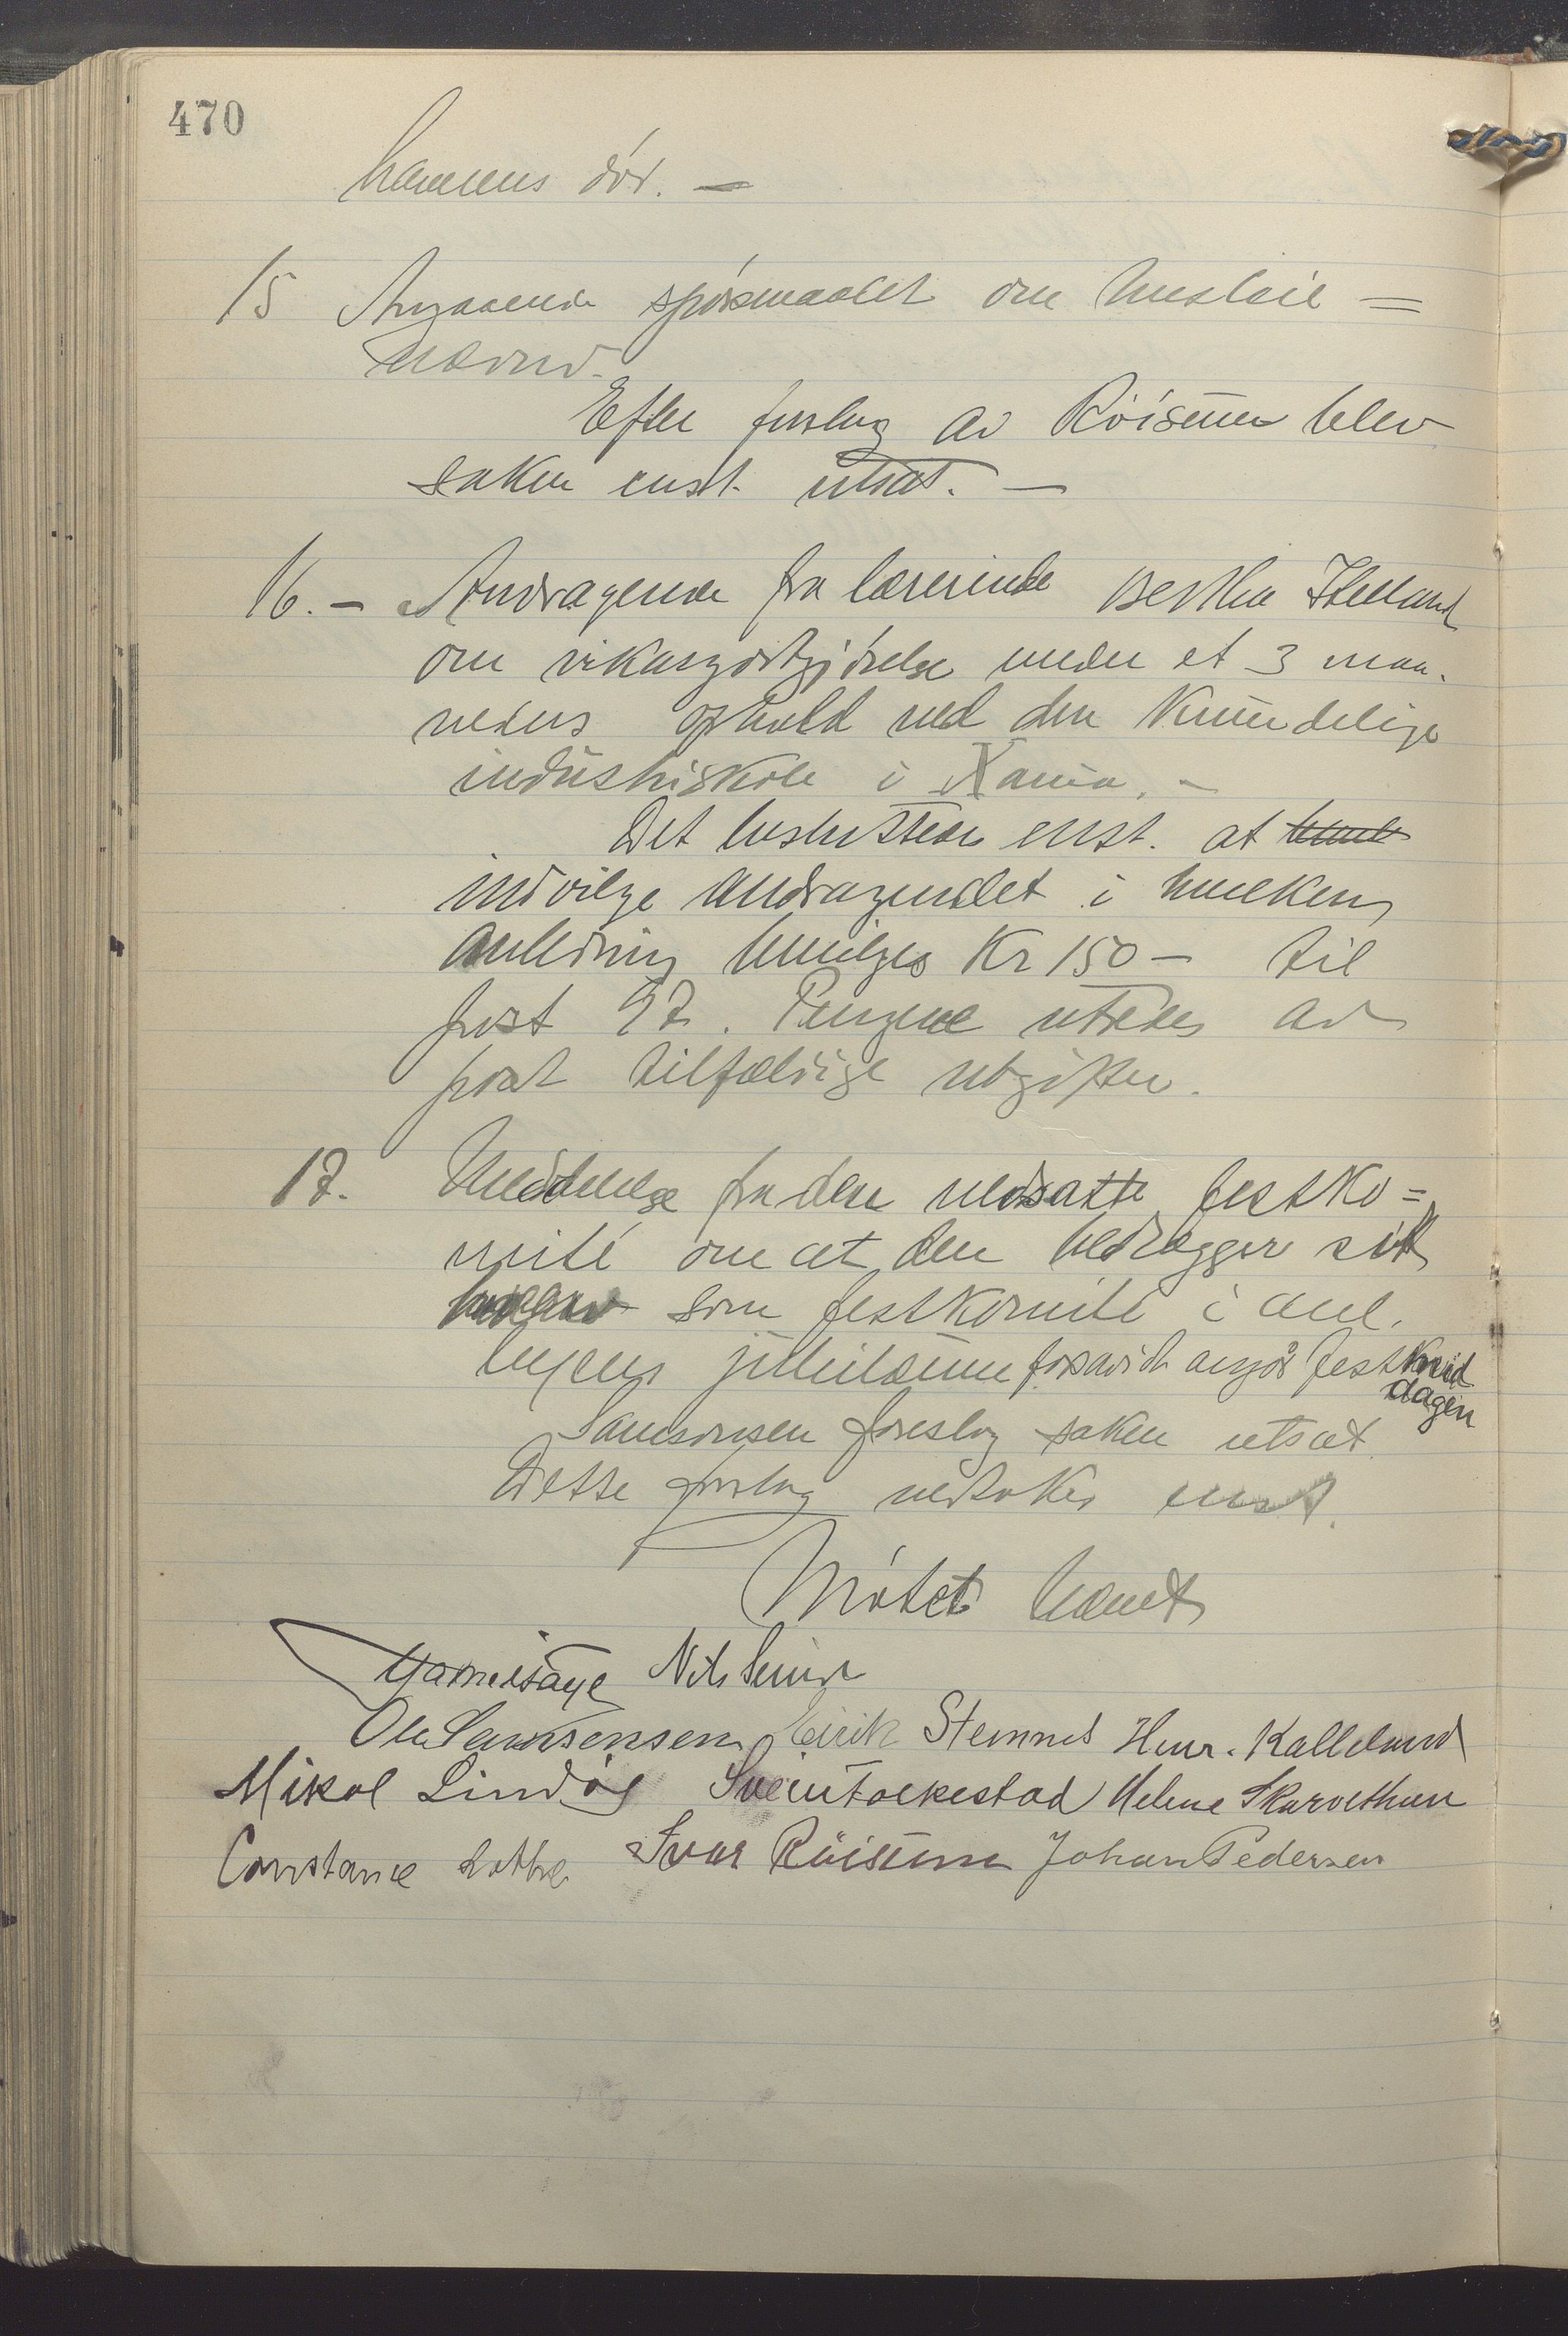 470
havnens død. —
15 Angaaende spørsmaalet om husleie =
nævnd.
Efter forslag av Röisum blev
saken enst. utsat. —
16. — Andragende fra lærerinde Bertha Helland
om vikargodtgjørelse under et 3 maa-
neders ophold ved den kvindelige
industriskole i Xania. —
Det besluttedes enst. at
indvilge andragendet i hvilken
anledning bevilges Kr 150 — til
post 97. Pengene utredes av
post tilfældige utgifter.
17. Meddelelse fra den nedsatte festko =
mité om at den nedlægger sit
som festkomité i anl.
byens jubilæum forsavidt angår fest
dagen
Samsonsen foreslog saken utsat.
Dette forslag vedtokes enst.
Møtet hævet
Nils
Ole Samsonsen Eirik Stemnes Henr. Kallelund
Mikal Lindøe Svein Tockestad Helene Skarvethun
Constance Ivar Röisum Johan Pedersen